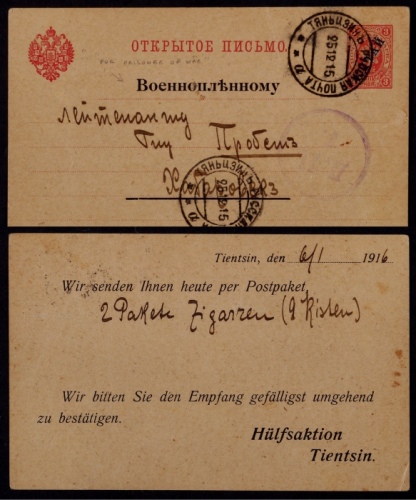 ОТКРЫТОЕ ПИСЬМО.
FOR PRISONER OF WAR
Военноплѣнному
3
ТЯНЬЦЗИНЬ
ПОЧТА
25 12 15
Лейтенанту
Гну Пробстъ
Хабаровск
ТЯНЬЦЗИНЬ
25 12 15
Tientsin, den 6/I 1916
Wir senden Ihnen heute per Postpaket,
2 Pakete Zigarren (9 Kisten)
Wir bitten Sie den Empfang gefälligst umgehend
zu bestätigen.
Hülfsaktion
Tientsin.